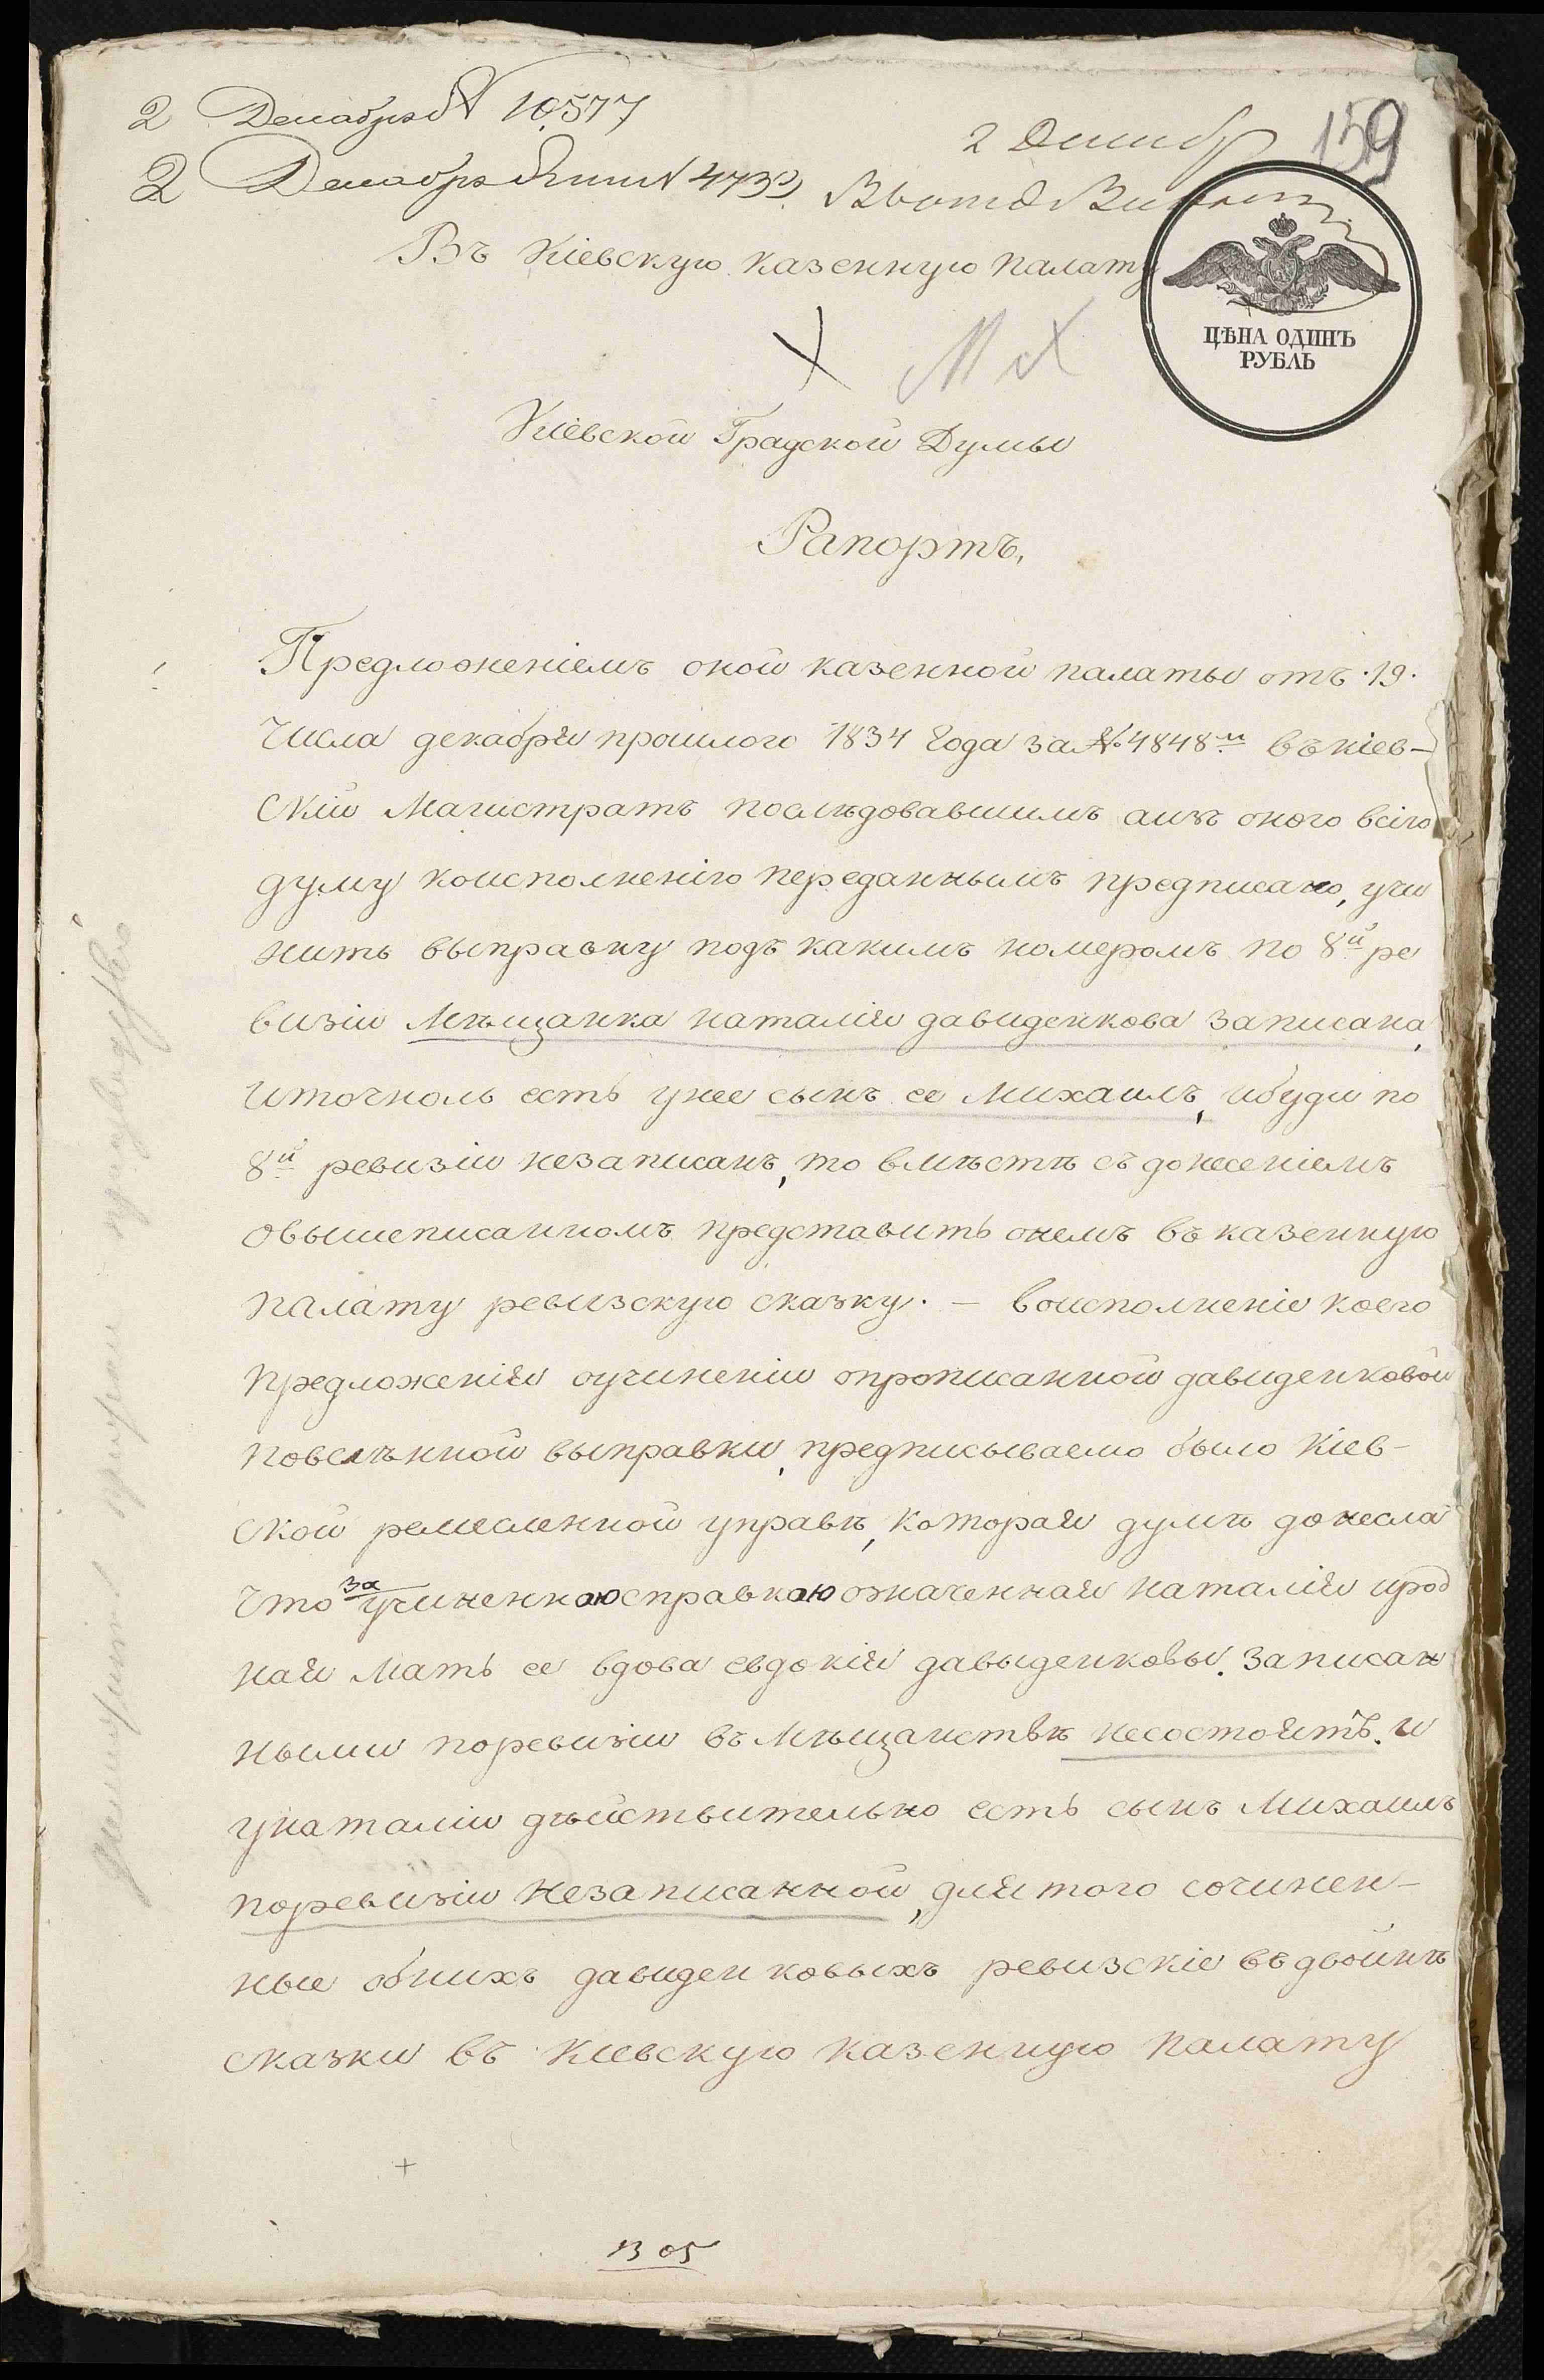 2 Декабря № 10577
2 Декабря № 4739
2 Декабр
159
Въ Кіевскую казенную палату
ЦѢНА ОДИНЪ
РУБЛЬ
Кіевской Градской Думы
Рапортъ,
Предложеніемъ оной казенной палаты отъ 19.
числа декабря прошлого 1834 года за № 4848м въ кіев-
скій Магистратъ послѣдовавшимъ аизъ оного всію
думу коисполненію переданнымъ предписано, учи
нить выправку подъ какимъ номеромъ по 8й ре
визіи Мѣщанка наталія давиденкова записана,
иточноль есть унее сынъ ее Михаилъ, ибуди по
8й ревизіи незаписанъ, то вмѣстѣ съ донесеніемъ
овышеписанномъ представить онемъ въ казенную
палату ревизскую сказку. — воисполненіе коего
предложенія оучиненіи опрописанной давиденковой
повелѣнной выправки, предписываемо было Кіев-
ской ремесленной управѣ, которая думѣ донесла
что за учиненною справкою означенная наталія ирод
ная мать ее вдова евдокія давыденковы. записан
ными поревизіи въ Мѣщанствѣ несостоятъ. и
унаталіи дѣйствительно есть сынъ Михаилъ
поревизіи незаписанной, длятого сочинен-
ные обнихъ давиденковыхъ ревизскіе въдвойнѣ
сказки въ Кіевскую казенную палату
1305